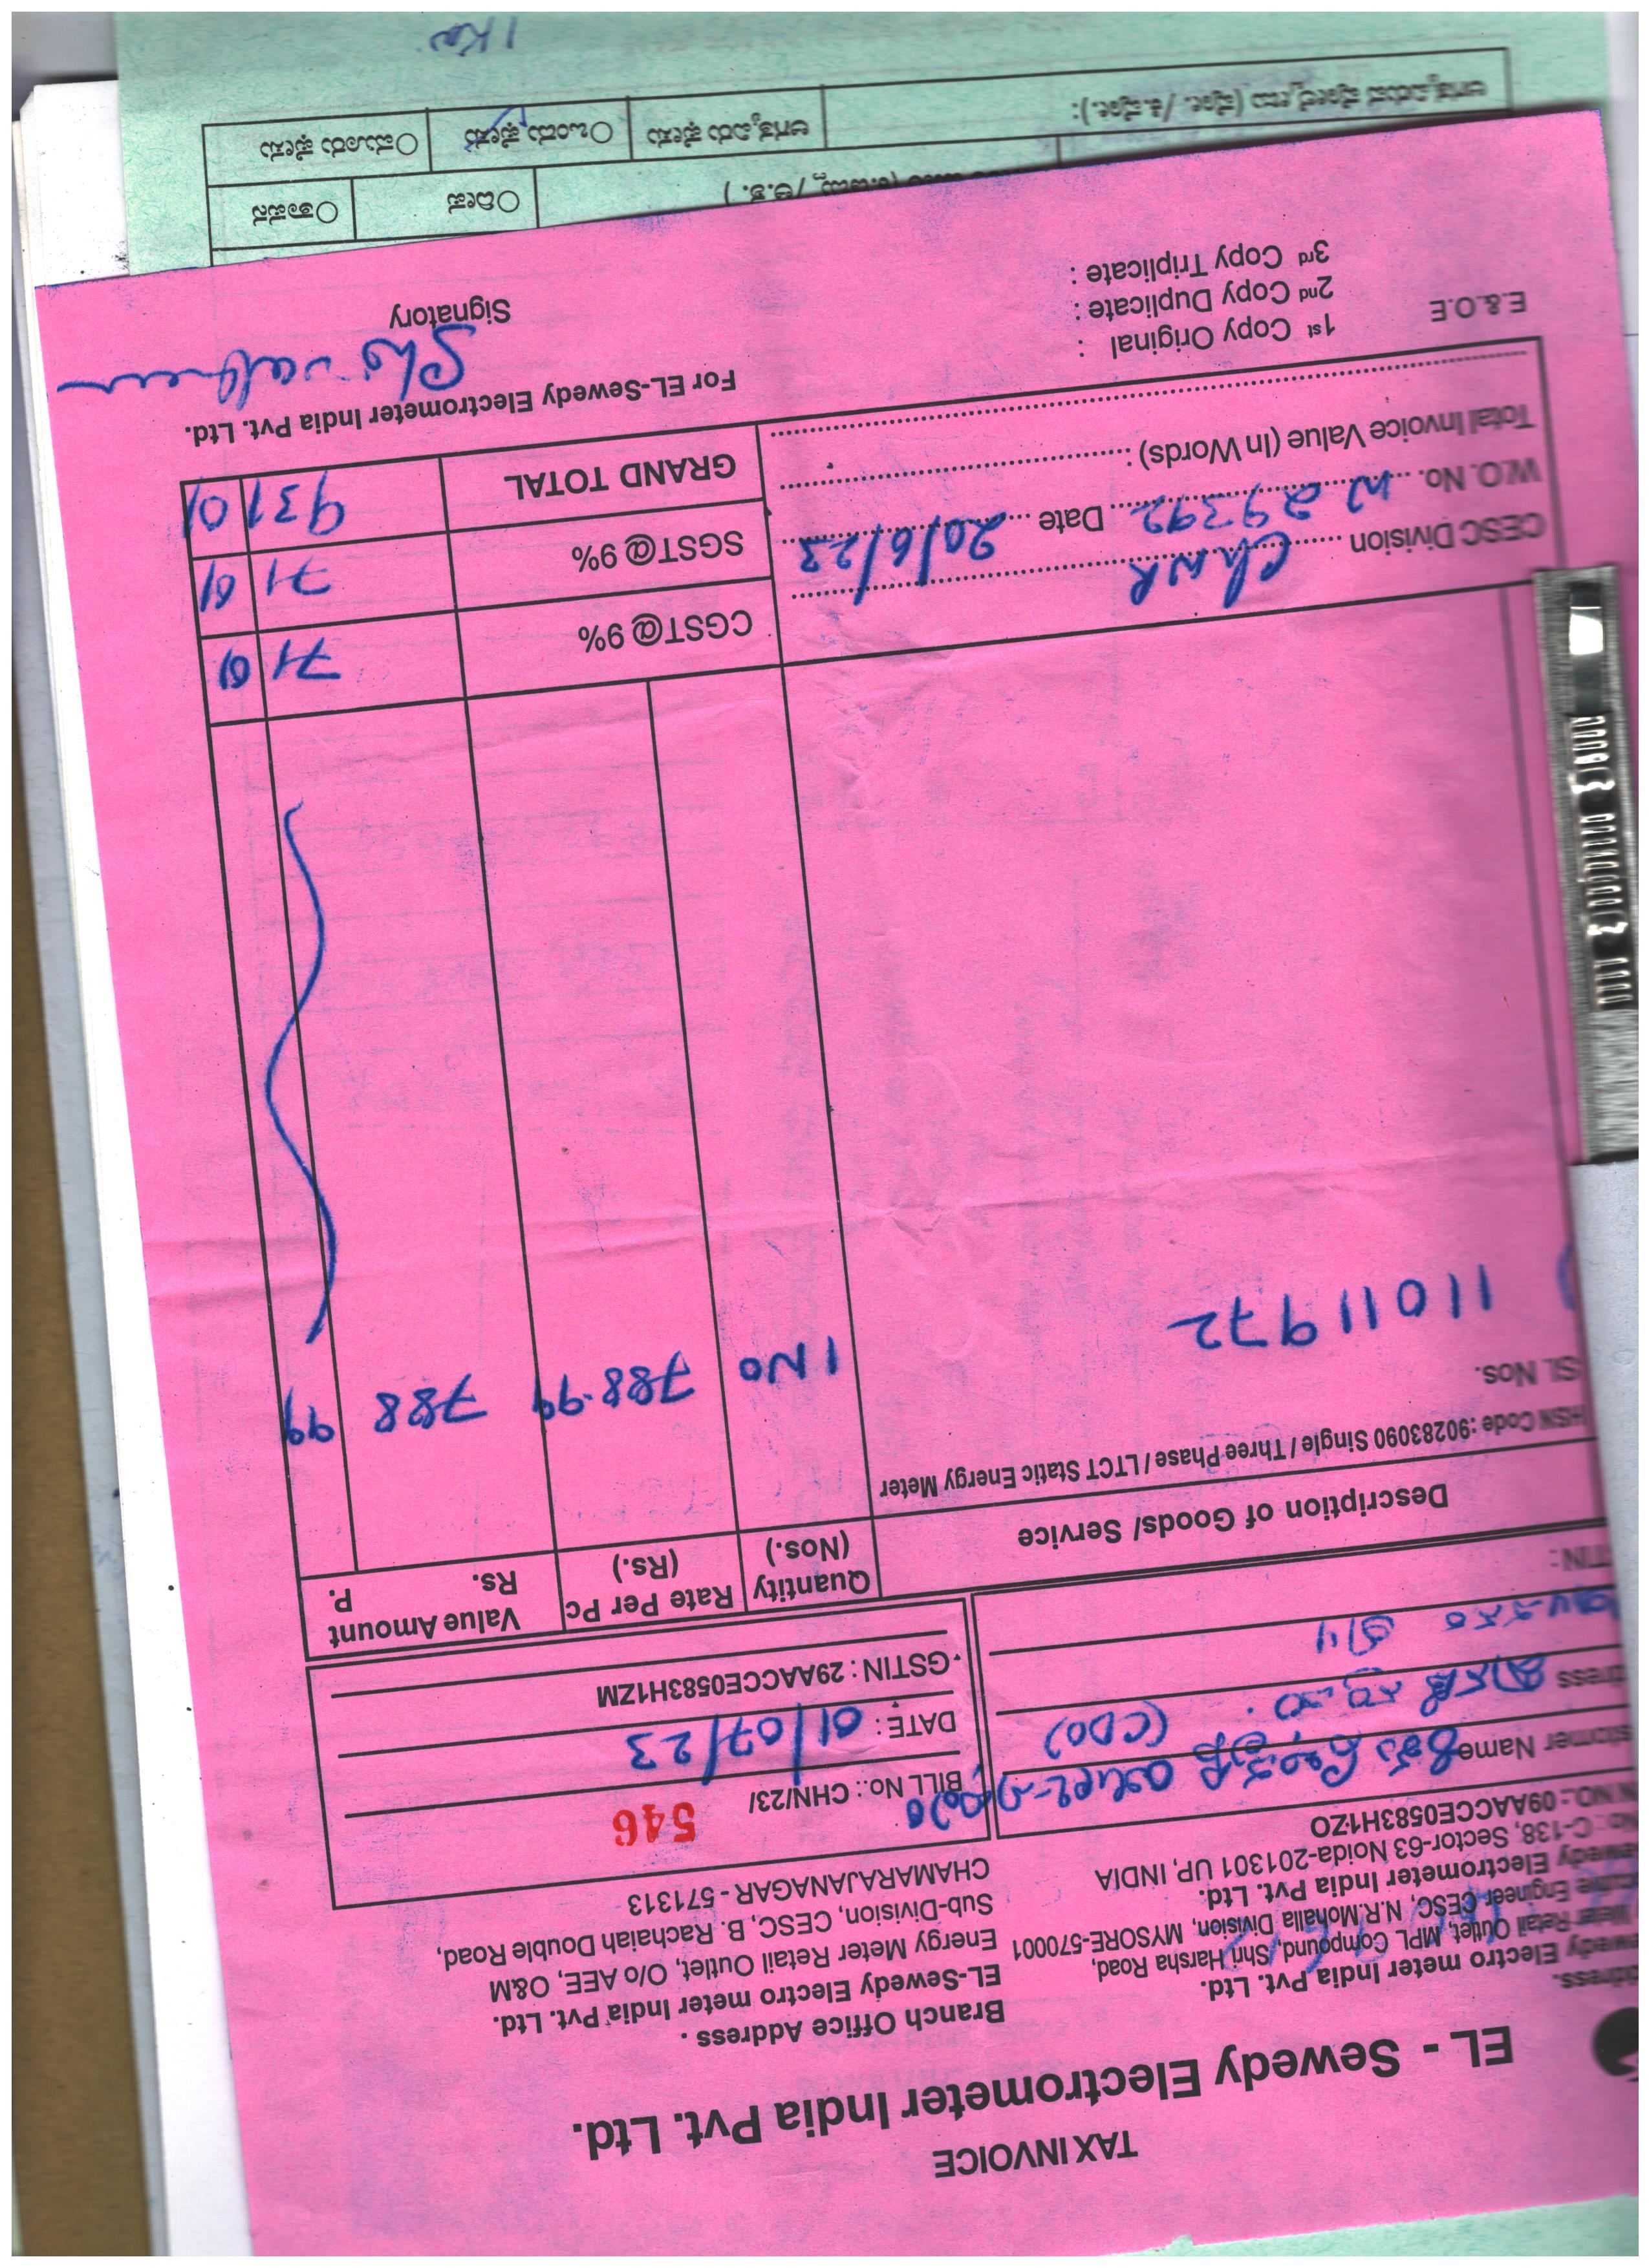 TAX INVOICE
EL - Sewedy Electrometer India Pvt. Ltd.
Branch Office Address .
EL-Sewedy Electro meter India Pvt. Ltd.
Energy Meter Retail Outlet, O/o AEE, O&M
Sub-Division, CESC, B. Rachaiah Double Road,
CHAMARAJANAGAR - 571313
ddress.
ewedy Electro meter India Pvt. Ltd.
Meter Retail Outlet, MPL Compound, Shri Harsha Road,
cutive Engineer CESC, N.R.Mohalla Division, MYSORE-570001
ewedy Electrometer India Pvt. Ltd.
No: C-138, Sector-63 Noida-201301 UP, INDIA
N NO.: 09AACCE0583H1ZO
BILL No.: CHN/23/ 546
DATE : 01/07/23
GSTIN : 29AACCE0583H1ZM
stomer Name
(CDO)
dress
TIN :
Description of Goods/ Service
Quantity (Nos.)
Rate Per Pc (Rs.)
Value Amount
Rs. P.
HSN Code : 90283090 Single / Three Phase / LTCT Static Energy Meter
Sl. Nos.
11011972 1 No 788.99 788 99
CGST@ 9% 71 01
SGST@ 9% 71 01
GRAND TOTAL 931 01
CESC Division ChNR
W.O. No. W 29392 Date 20/6/23
Total Invoice Value (In Words) :
For EL-Sewedy Electrometer India Pvt. Ltd.
E.&.O.E
1st Copy Original :
2nd Copy Duplicate :
3rd Copy Triplicate :
Signatory
○ದೀಪ ○ತಾಪನ
○ಒಂದು ಫೇಸು ○ಮೂರು ಫೇಸು
1 Kw